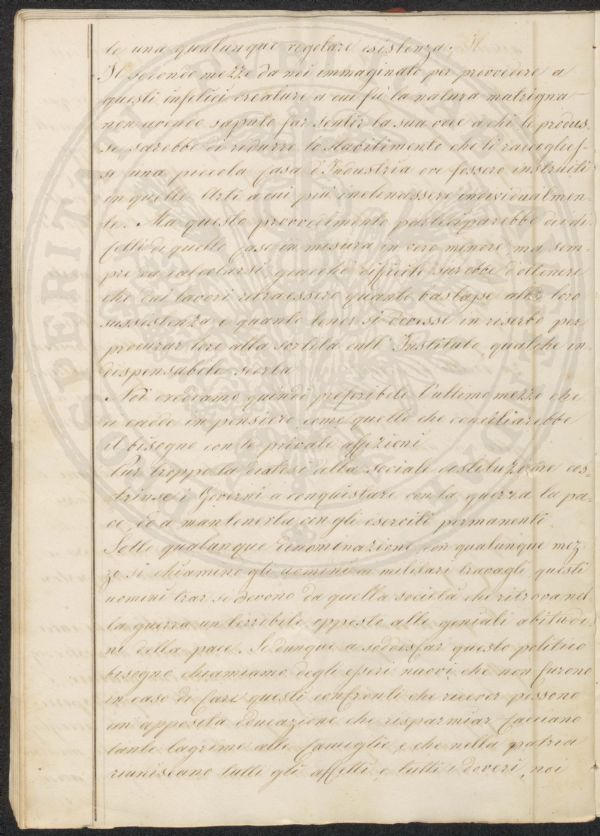 le una qualunque regolare esistenza. Il
Il secondo mezzo da noi immaginato per provvedere a
questi infelici creature a cui fù la natura matrigna
non avendo saputo far sentir la sua voce a chi le produs„
se sarebbe di ridurre lo stabilimento che li raccoglies„
su una piccola Casa d'Industria ove fossero instruiti
in quelle Arti a cui più inclinassero individualmen„
te. Ma questo provvedimento parteciparebbe dei di„
fetti di quelle Case in misura in vero minore, ma sem„
pre da calcolarsi giacchè difficile sarebbe d'ottenere
che dai lavori ritraessero quanto bastasse alla loro
sussistenza e quanto tener si dovesse in reserbo per
procurar loro alla sortita dall'Instituto qualche in„
dispensabile scorta
Noi crediamo quindi preferibile l'ultimo mezzo che
ci cadde in pensiero come quello che conciliarebbe
il bisogno con le private affezioni
Pur troppo la sociale cos„
trinse i Governi a conquistare con la guerra la pa„
ce, ed a mantenerla con gli eserciti permanenti.
Sotto qualunque denominazione, con qualunque mez„
zo si chiamino gli uomini ai militari travagli questi
uomini trar si devono da quella società che ritrova nel„
la guerra un terribile opposto alle geniali abitudi„
ni della pace. Se dunque a soddisfar questo politico
bisogno chiamiamo degli esseri nuovi che non furono
in caso di fare questi confronti che ricever possono
un'apposita educazione che risparmiar facciano
tante lagrime alle famiglie, e che nella patria
riuniscano tutti gli affetti, e tutti i doveri, noi
PROSPERITATI PUBLICAE